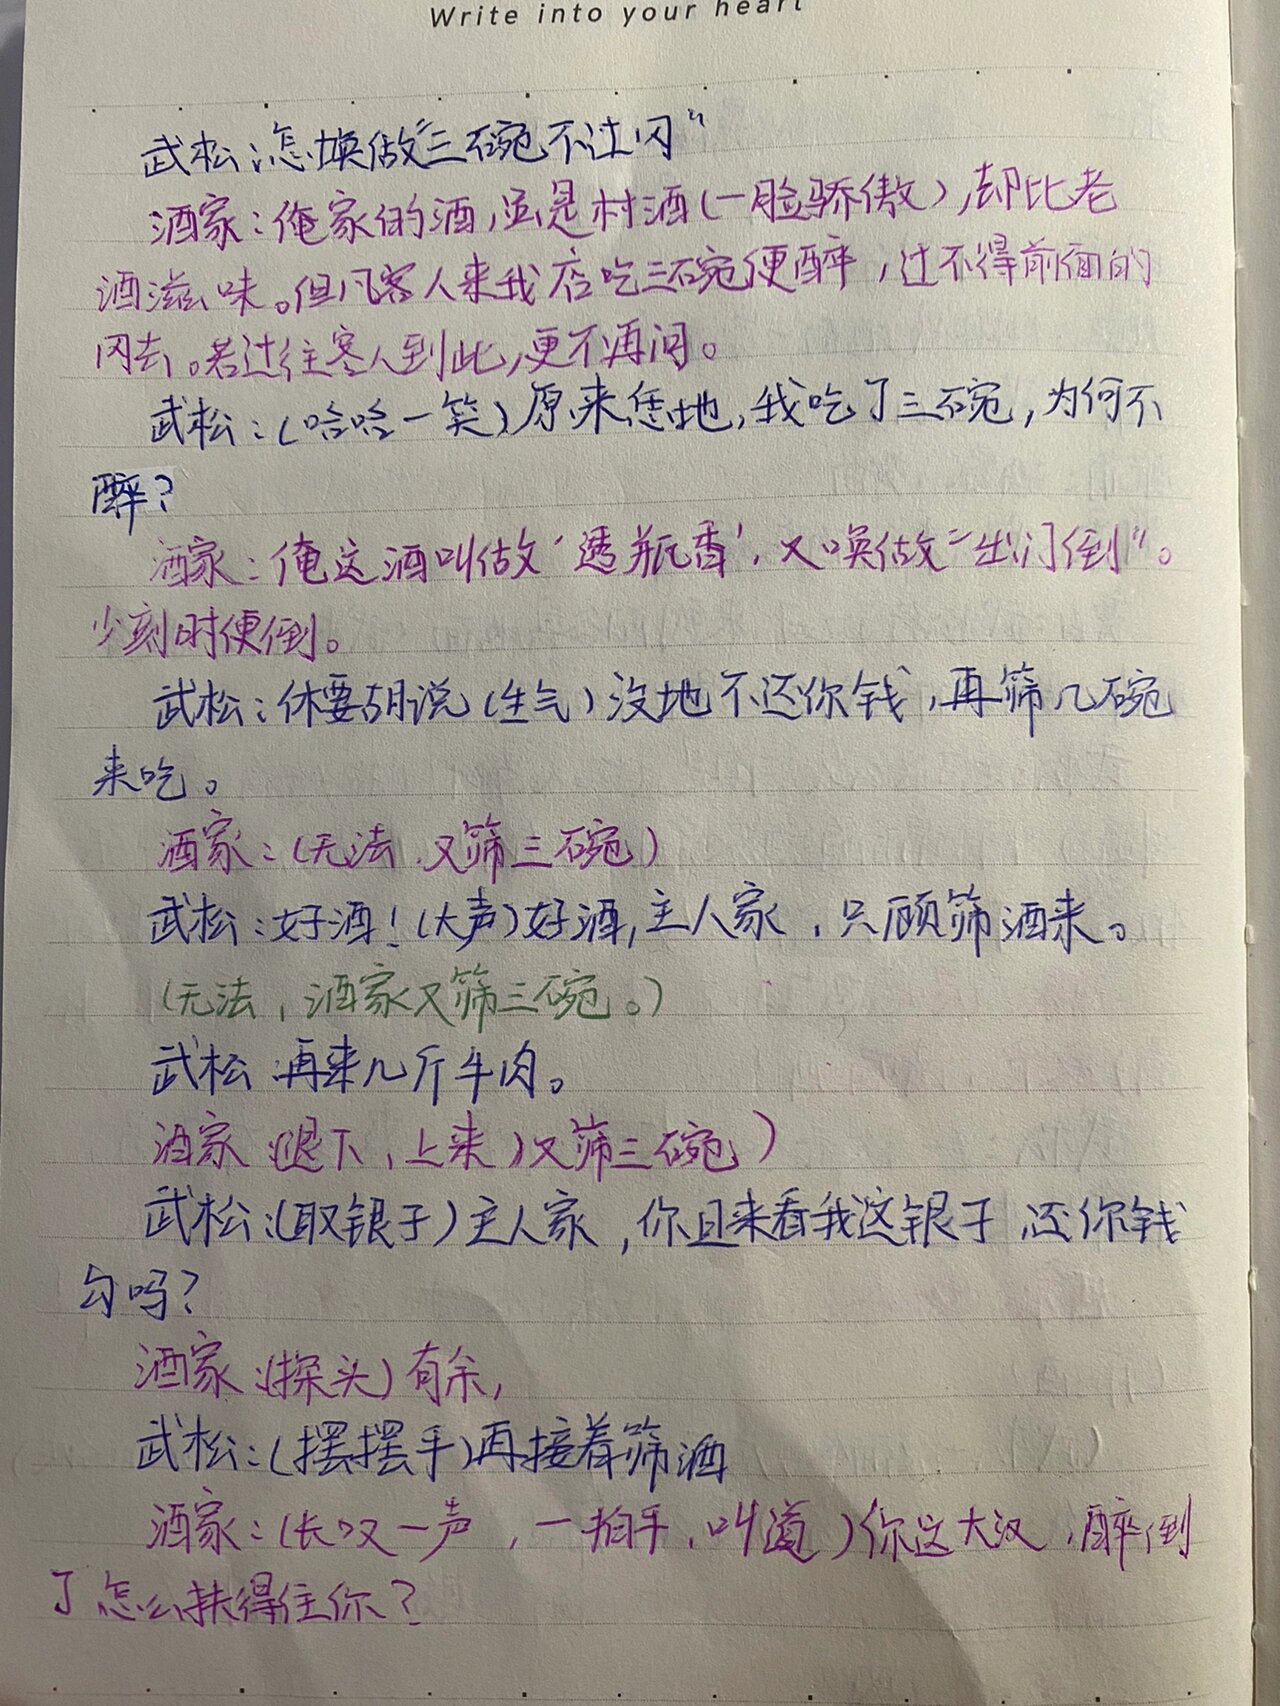 Write into your heart
武松:怎换做"三碗不过冈"
酒家:俺家的酒,虽是村酒(一脸骄傲),却比老
酒滋味。但凡客人来我店吃三碗便醉,过不得前面的
冈去。若过往客人到此,更不再问。
武松:(哈哈一笑)原来恁地,我吃了三碗,为何不
醉?
酒家:俺这酒叫做'透瓶香',又唤做"出门倒"。
少刻时便倒。
武松:休要胡说(生气)没地不还你钱,再筛几碗
来吃。
酒家:(无法,又筛三碗)
武松:好酒!(大声)好酒,主人家,只顾筛酒来。
(无法,酒家又筛三碗。)
武松:再来几斤牛肉。
酒家(退下,上来)又筛三碗)
武松:(取银子)主人家,你且来看我这银子,还你钱
勾吗?
酒家:(探头)有余,
武松:(摆摆手)再接着筛酒
酒家:(长叹一声,一拍手,叫道)你这大汉,醉倒
了怎么扶得住你?